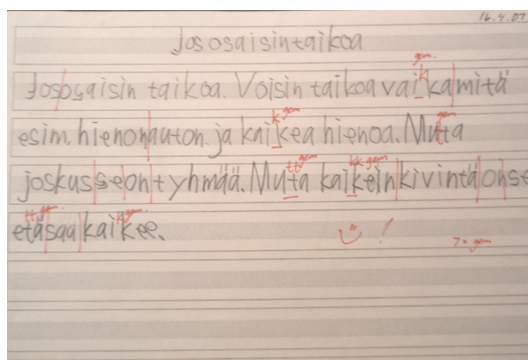 16.4.07
Jos osaisin taikoa
Jos osaisin taikoa. Voisin taikoa vaikka mitä
esim. hienon auton ja kaikea hienoa. Muta
joskus se on tyhmää. Muta kaikein kivintä on se
etä saa kaikee.